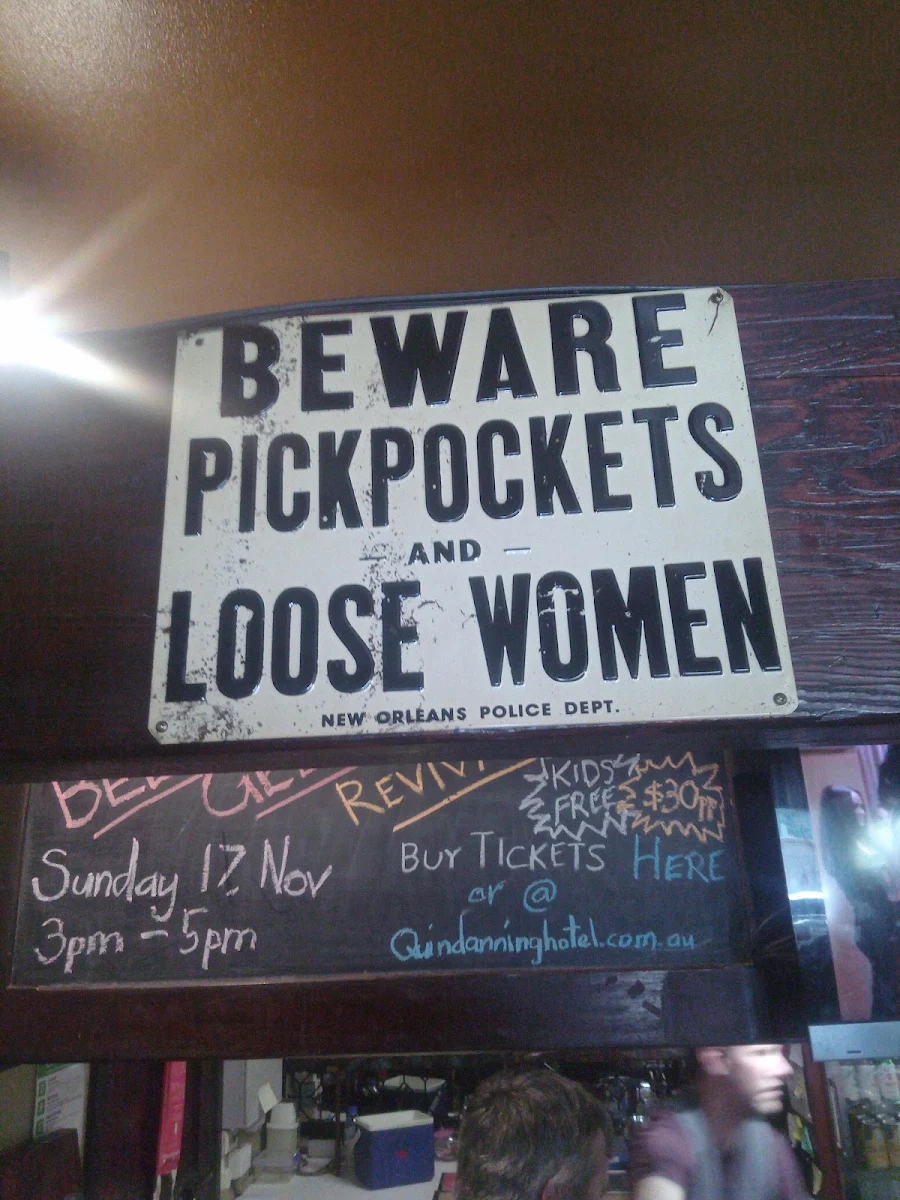 BEWARE
PICKPOCKETS
— AND —
LOOSE WOMEN
NEW ORLEANS POLICE DEPT.
BEE GEES REVIVAL
KIDS
FREE
$30pp
Sunday 17 Nov
3pm - 5pm
BUY TICKETS HERE
or @
Quindanninghotel.com.au